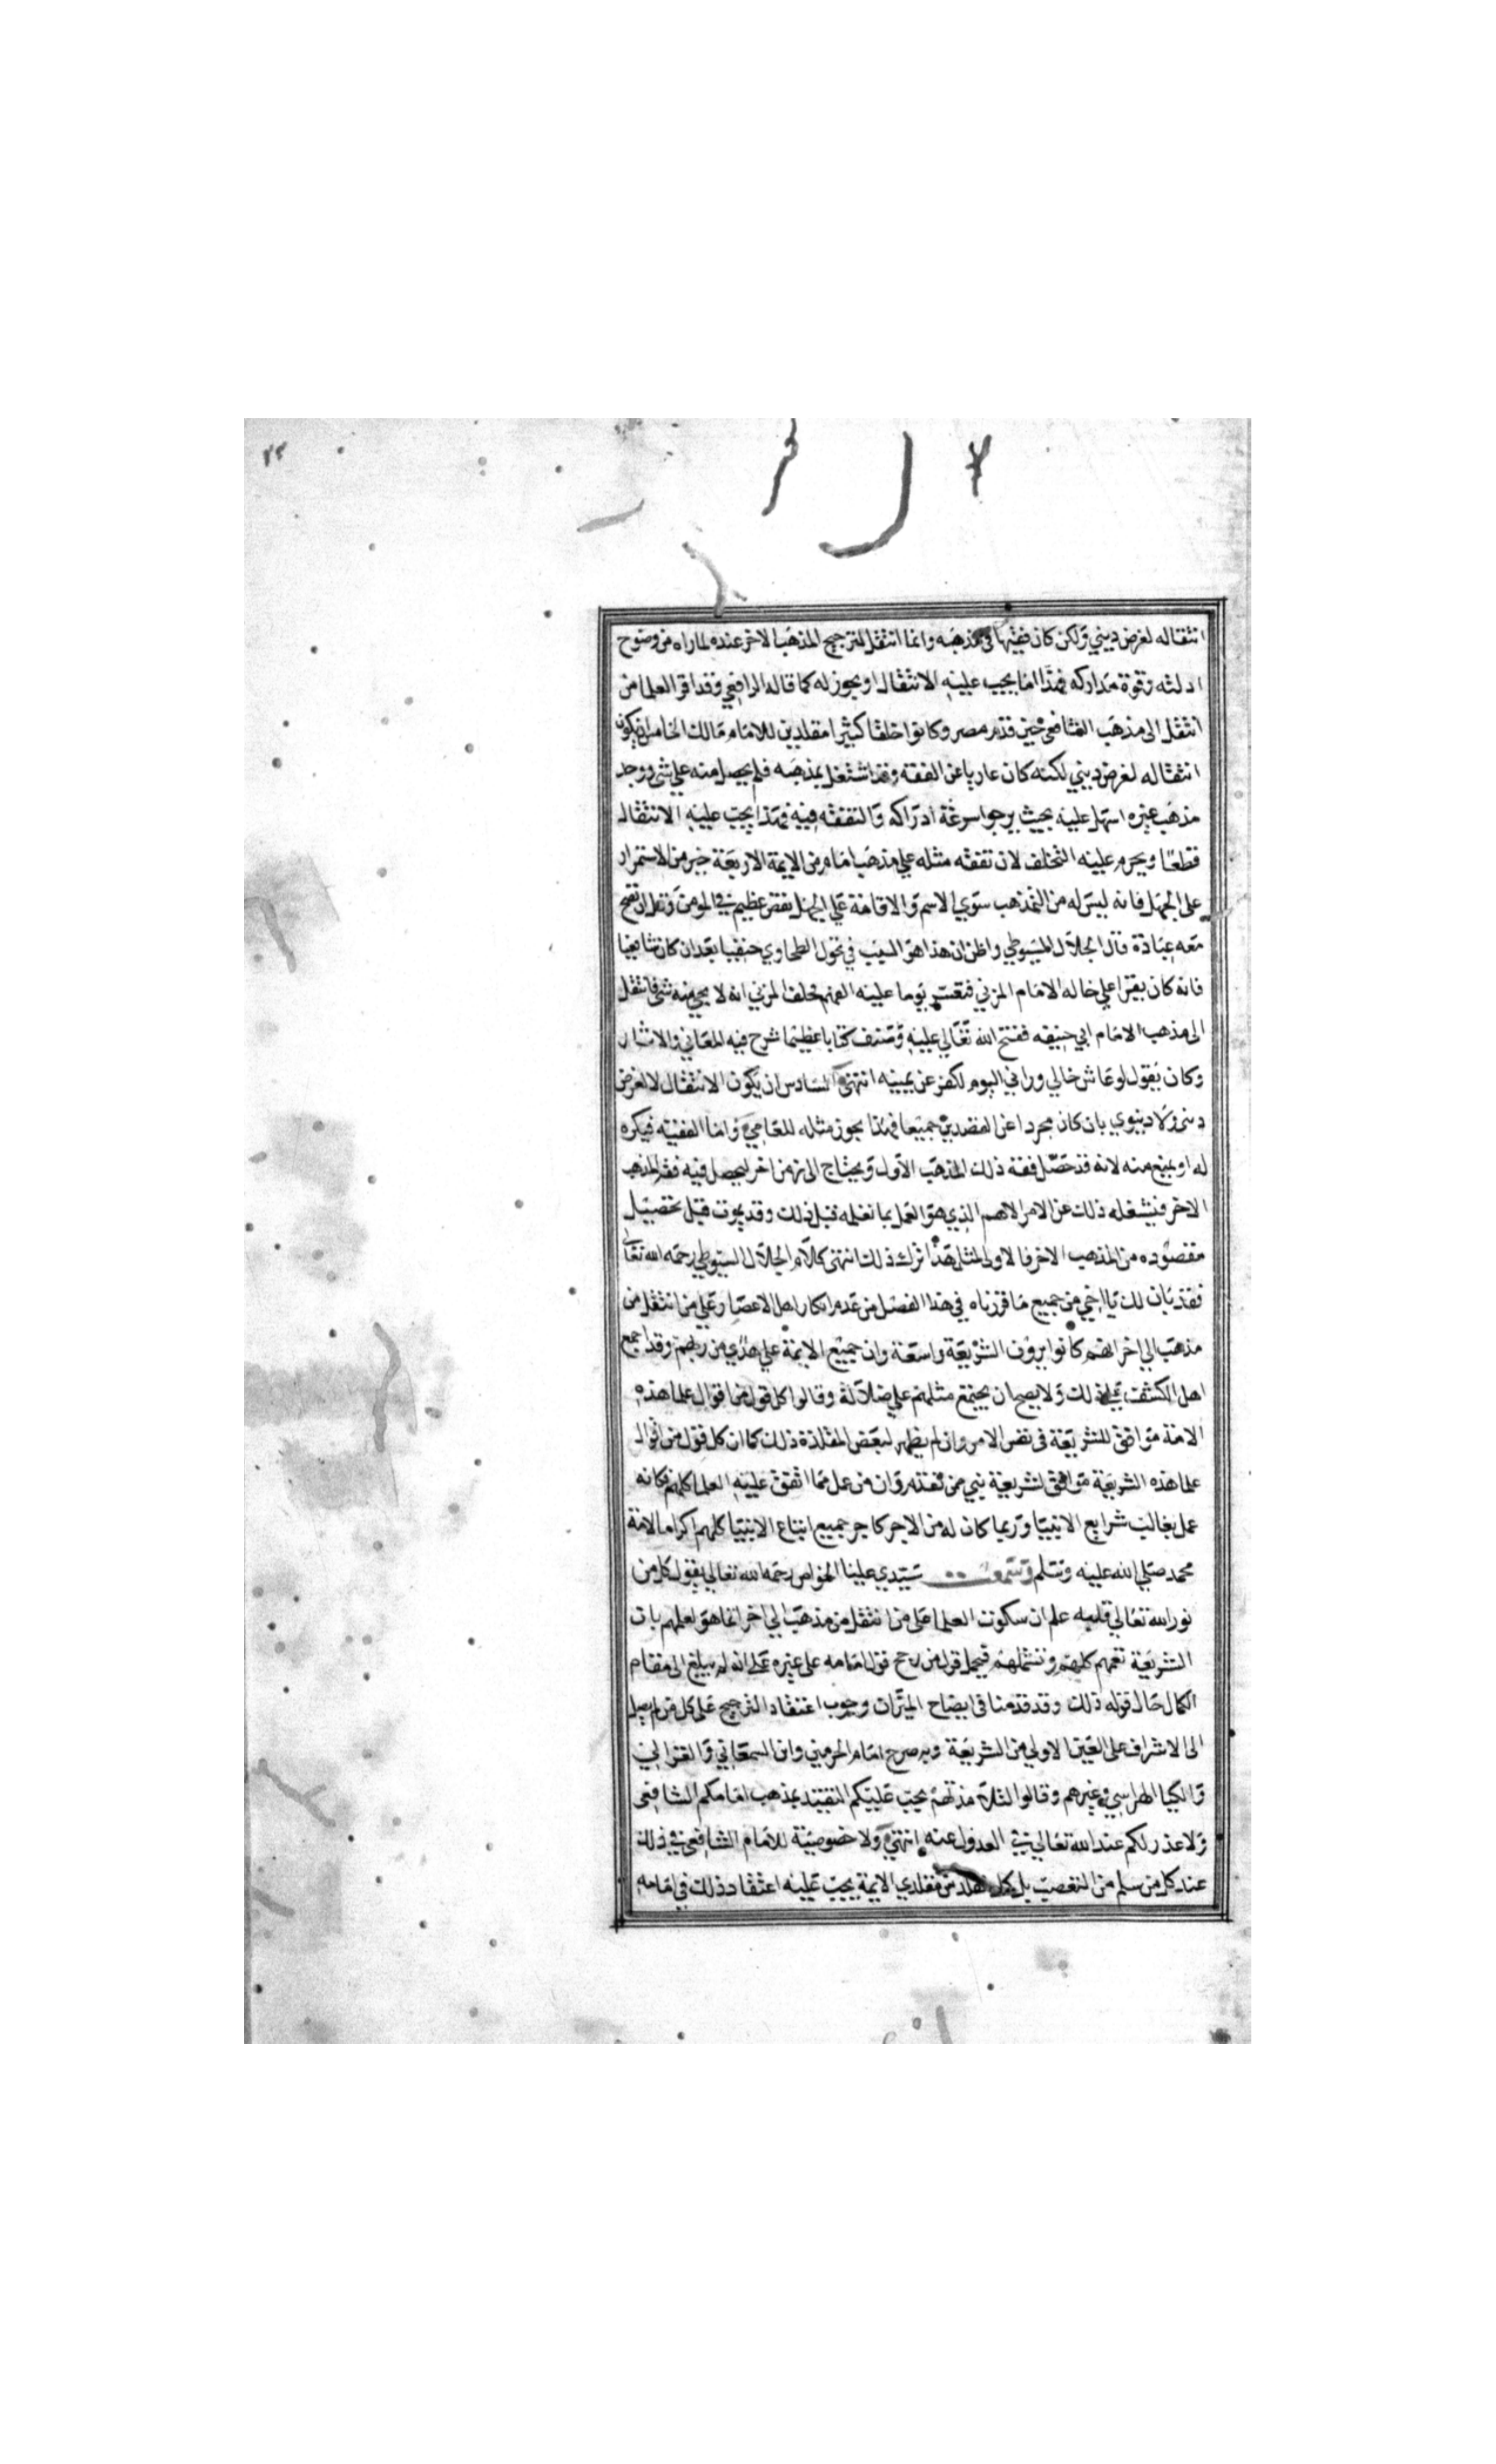 ٢٣
انتقاله لغرض ديني ولكن كان فقيها في مذهبه وانما انتقل لترجيح المذهب الاخر عنده لما راه من وضوح
ادلته وقوة مداركه فهذا اما يجب عليه الانتقال او يجوز له كما قاله الرافعي وقد اقر العلما من
انتقل الى مذهب الشافعي حين قدم مصر وكانوا خلقا كثيرا مقلدين للامام مالك الخامس ان يكون
انتقاله لغرض ديني لكنه كان عاريا عن الفقه وقد اشتغل بمذهبه فلم يحصل منه على شي ووجد
مذهب غيره اسهل عليه بحيث يرجوا سرعة ادراكه والتفقه فيه فهذا يجب عليه الانتقال
قطعا ويحرم عليه التخلف لان تفقه مثله علي مذهب امام من الايمة الاربعة خير من الاستمرار
على الجهل فانه ليس له من التمذهب سوي الاسم والاقامة علي الجهل نقص عظيم في المومن وقل ان تصح
معه عبادة قال الجلال السيوطي واظن ان هذا هو السبب في تحول الطحاوي حنفيا بعد ان كان شافعيا
فانه كان يقرا علي خاله الامام المزني فتعسر يوما عليه الفهم فحلف المزني انه لا يجي منه شي فانتقل
الى مذهب الامام ابي حنيفه ففتح الله تعالي عليه وصنف كتابا عظيما شرح فيه المعاني والاثار
وكان يقول لو عاش خالي وراني اليوم لكفر عن يمينه انتهى السادس ان يكون الانتقال لا لغرض
ديني ولا دنيوي بان كان مجردا عن القصدين جميعا فهذا يجوز مثله للعامي واما الفقيه فيكره
له او يمنع منه لانه قد حصل فقه ذلك المذهب الاول ويحتاج الى زمن اخر ليحصل فيه فقه المذهب
الاخر فيشغله ذلك عن الامر الاهم الذي هو العمل بما تعلمه قبل ذلك وقد يموت قبل تحصيل
مقصوده من المذهب الاخر فالاولى لمثل هذا ترك ذلك انتهى كلام الجلال السيوطي رحمه الله تعالى
فقد بان لك يا اخي من جميع ما قررناه في هذا الفصل من عدم انكار اهل الاعصار علي من انتقل من
مذهب الي اخر انهم كانوا يرون الشريعة واسعة وان جميع الايمة علي هدي من ربهم وقد اجمع
اهل الكشف علي ذلك ولا يصح ان يجتمع مثلهم علي ضلالة وقالوا كل قول من اقوال علما هذه
الامة موافق للشريعة في نفس الامر وان لم يظهر لبعض المقلدة ذلك كما ان كل قول من اقوال
علما هذه الشريعة موافق لشريعة نبي ممن تقدم وان من عمل بما اتفق عليه العلما كلهم فكانه
عمل بغالب شرايع الانبيا وربما كان له من الاجر كاجر جميع اتباع الانبيا كلهم اكراما لامة
محمد صلي الله عليه وسلم وسمعت سيدي عليا الخواص رحمه الله تعالي يقول كل من
نور الله تعالي قلبه علم ان سكوت العلما على من انتقل من مذهب الي اخر انما هو لعلمهم بان
الشريعة تعمهم كلهم وتشملهم فيحمل قول من رجح قول امامه على غيره على انه لم يبلغ الى مقام
الكمال حال قوله ذلك وقد قدمنا في ايضاح الميزان وجوب اعتقاد الترجيح على كل من لم يصل
الى الاشراف على العين الاولي من الشريعة وبه صرح امام الحرمين وابن السمعاني والغزالي
والكيا الهراسي وغيرهم وقالوا لتلامذتهم يجب عليكم التقييد بمذهب امامكم الشافعي
ولا عذر لكم عند الله تعالي في العدول عنه انتهي ولا خصوصية للامام الشافعي في ذلك
عند كل من سلم من التعصب بل كل مقلد من مقلدي الايمة يجب عليه اعتقاد ذلك في امامه